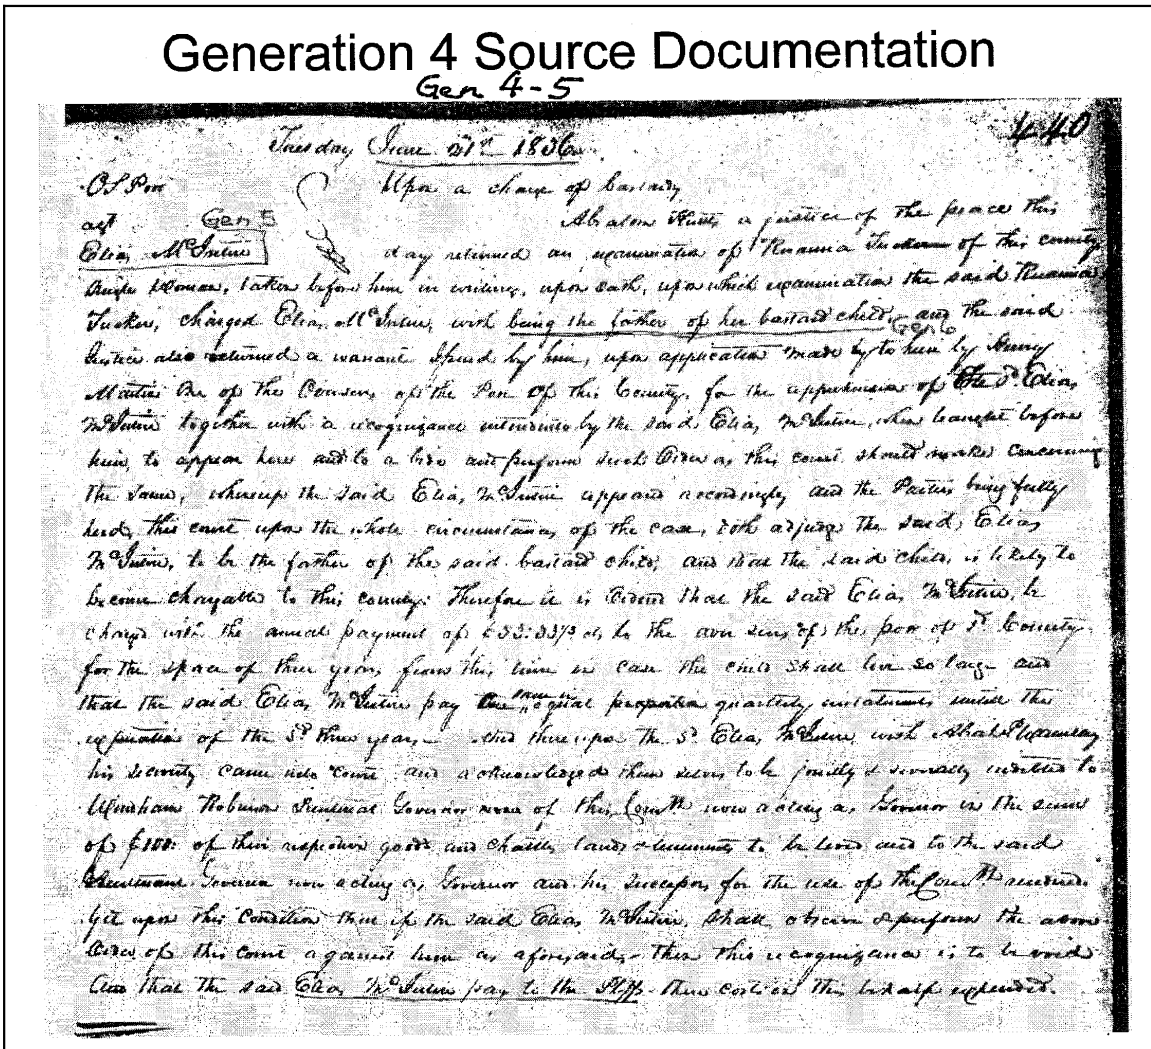 Generation 4 Source Documentation
Gen 4-5
440
Tuesday June 21st 1836
O.S. Poor
Upon a charge of bastardy
agt
Gen 5
a justice of the peace this
Elias McIntire
day returned an examination of Tucker of this county
Single Woman, taken before him in writing, upon oath, upon which examination the said
Tucker, charged Elias McIntire, with being the father of her bastard child, and the said
Gen 6
Justice also returned a warrant issued by him, upon application made by to him by
One of the Overseers of the Poor of this County, for the apprehension of the sd. Elias
McIntire together with a recognizance by the said Elias McIntire, when brought before
him, to appear here and to abide and perform such Order as this court should make concerning
the same, the said Elias McIntire appeard accordingly and the Parties being fully
herd, this court upon the whole circumstances of the case, doth adjudge the said, Elias
McIntire, to be the father of the said bastard child, and that the said child, is likely to
become chargable to this county: Therefore it is Ordered that the said Elias McIntire, be
charged with the annual payment of to the over seers of the poor of sd. County
for the space of three years from this time in case the child shall live so long and
that the said Elias McIntire pay equal quarterly instalments untill the
expiration of the sd three years. And thereupon the sd. Elias McIntire with
his security came into court and acknowledged them selves to be jointly & severally indebted to
Robinson Governor of this now acting as Governor in the sum
of $100: of their respective goods and chattles lands & tenements to be levied and to the said
Lieutenant Governor now acting as Governor and his successors for the use of the Comth rendered.
Yet upon this Condition that if the said Elias McIntire, shall observe & perform the above
Order of this court against him as aforesaid, then this recognizance is to be void
And that the said Elias McIntire pay to the Pltffs. their costs in this behalf expended.